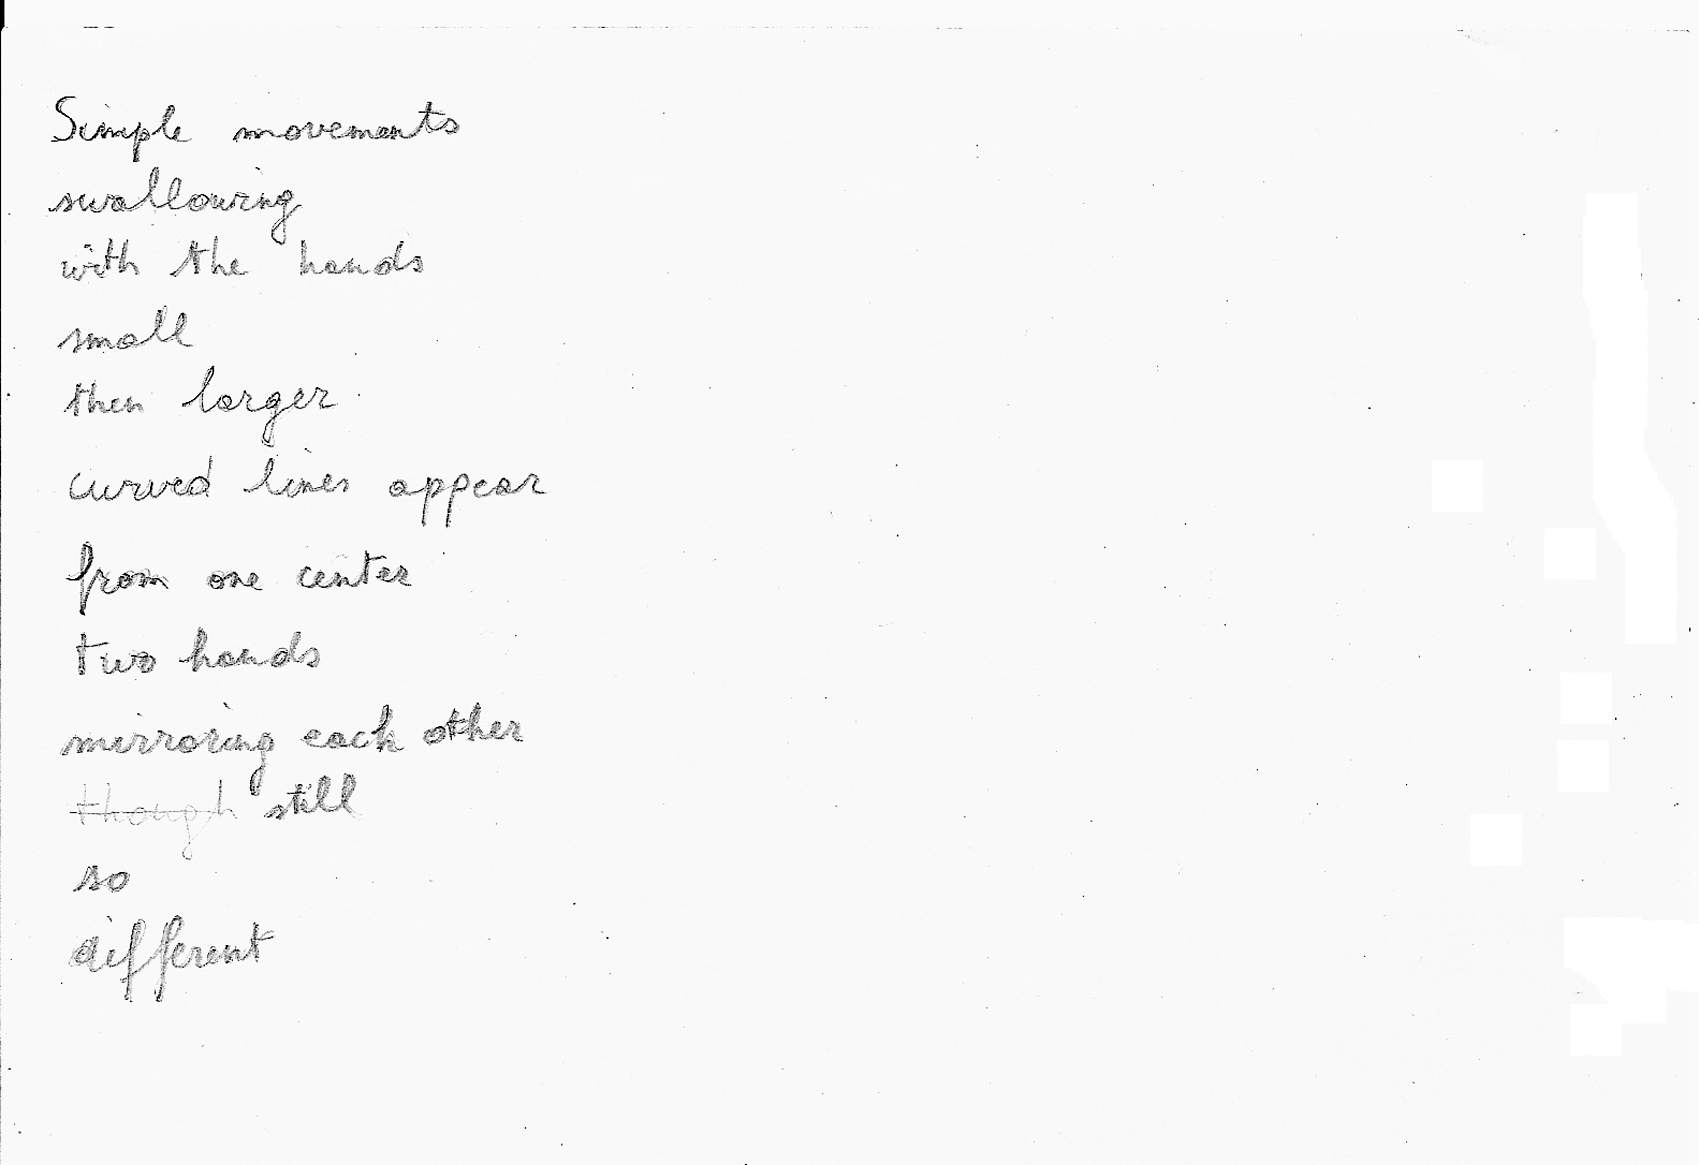 Simple movements
swallowing
with the hands
small
then larger
curved lines appear
from one center
two hands
mirroring each other
though still
so
different